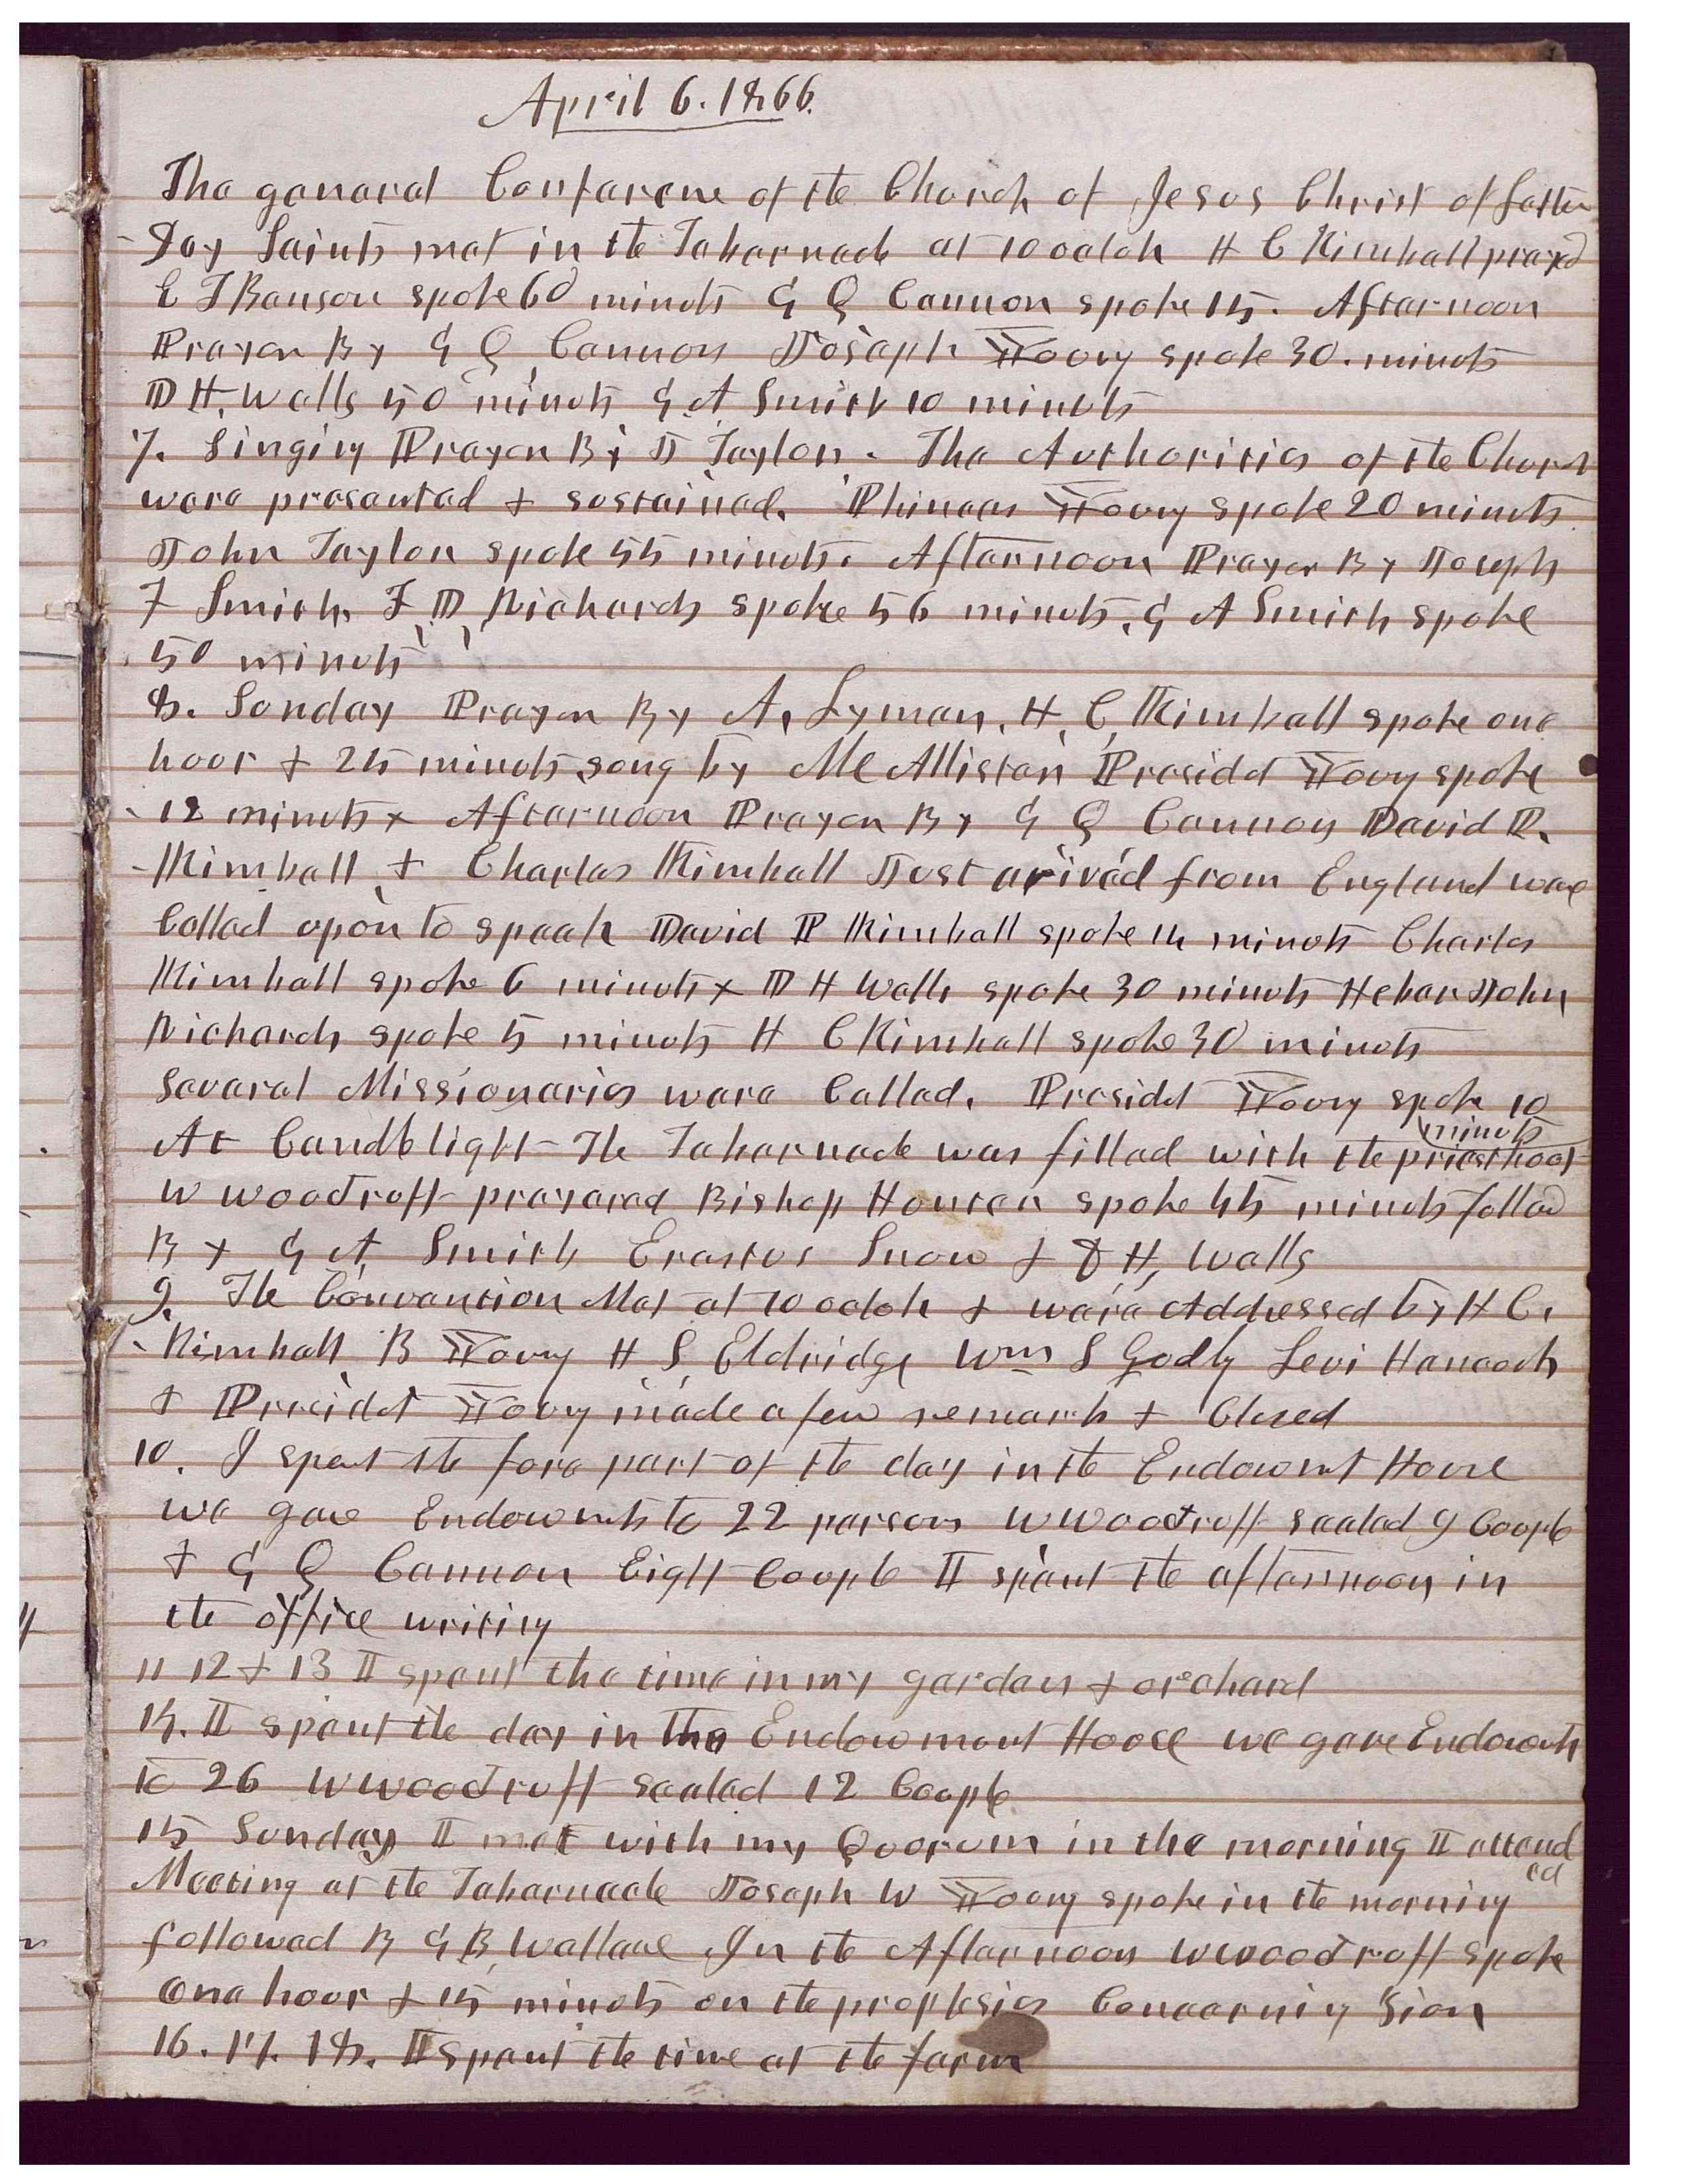 April 6. 1866.
The general Conferene of the Church of Jesus Christ of Latter
Day Saints met in the Tabernacle at 10 oclok H C Kimball prayed
E T Benson spoke 60 minuts G Q Cannon spoke 15. Afternoon
Prayer By G Q Cannon Joseph Young spoke 30. minuts
D H. Wells 50 minuts G A Smith 10 minuts
7. Singing Prayer By J Taylor. The Authorities of the Church
were presented & sustained. Phineas Young spoke 20 minuts
John Taylor spoke 55 minuts. Afternoon Prayer By Joseph
F Smith. F D Richards spoke 56 minuts. G A Smith spoke
50 minuts
8. Sunday Prayer By A. Lyman. H. C. Kimball spoke one
hour & 25 minuts song by McAllister Presidet Young spoke
12 minuts x Afternoon Prayer By G Q Cannon David P.
Kimball & Charles Kimball Just arived from England ware
Called upon to speak David P Kimball spoke 14 minuts Charles
Kimball spoke 6 minuts x D H Wells spoke 30 minuts Heber John
Richards spoke 5 minuts H C Kimball spoke 30 minuts
Several Missionaries were Called. Presidet Young spoke 10
minuts
At Candlelight The Tabernacle was filled with the priesthood
W Woodruff prayered Bishop Hunter spoke 45 minuts followd
By G A Smith Erastus Snow & D H. Wells
9. The Convention Met at 10 oclok & were Addressed by H C.
Kimball B Young H S Eldridge Wm S Godby Levi Hancock
& Presidet Young made a few remarks & Closed
10. I spent the fore part of the day in the Endowmt House
we gave Endowmts to 22 persons W Woodruff sealed 9 Couple
& G Q Cannon Eight Couple I spent the afternoon in
the office writing
11 12 & 13 I spent the time in my garden & orchard
14. I spent the day in the Endowment House we gave Endowmts
to 26 W Woodruff sealed 12 Couple
15 Sunday I met with my Quorum in the morning I attend
ed
Meeting at the Tabernacle Joseph W Young spoke in the morning
followed B G B, Wallace In the Afternoon W Woodruff spoke
One hour & 15 minuts on the prophesies Concerning Sion
16. 17. 18. I spent the time at the farm